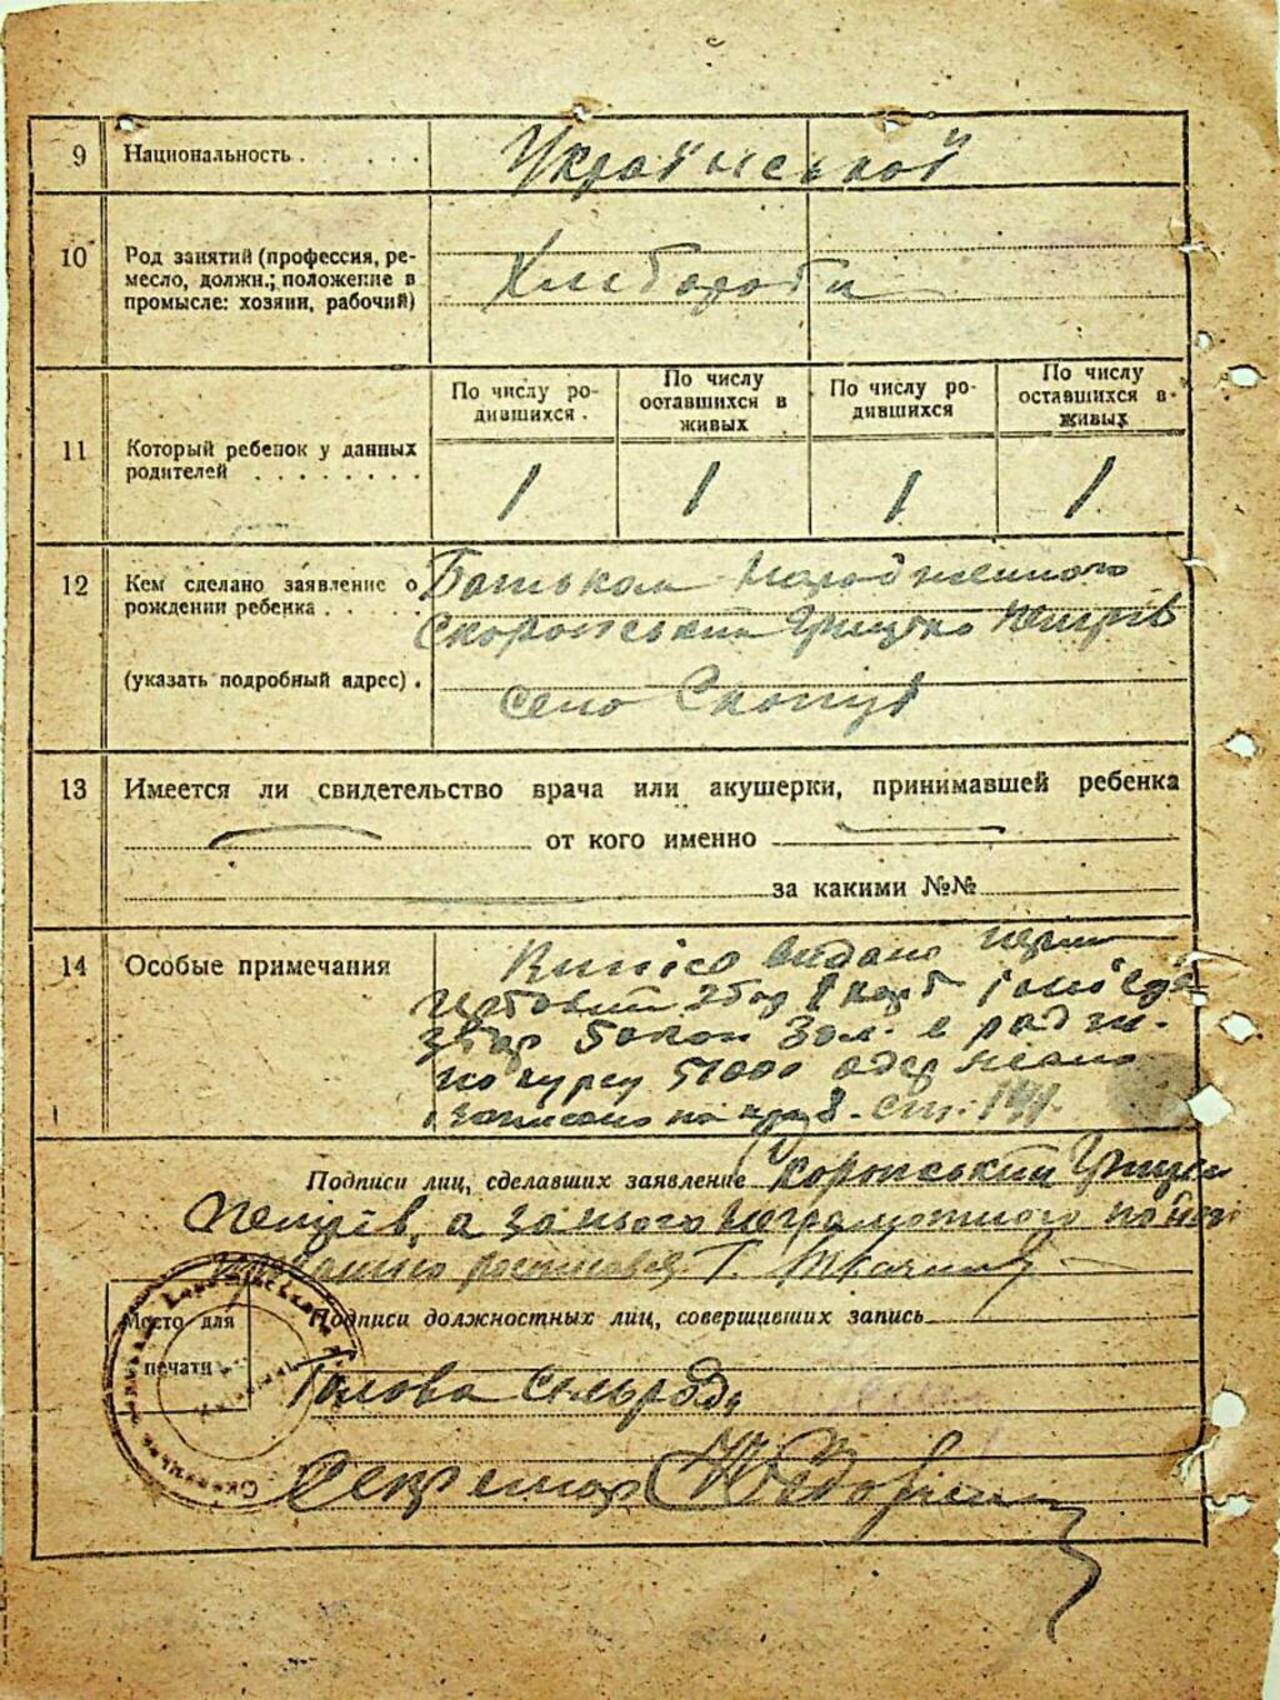 9 Национальность . . . . . . Української
10 Род занятий (профессия, ре-
месло, должн.; положение в
промысле: хозяин, рабочий)
Хлібороби
По числу ро-
дившихся .
По числу
оставшихся в
живых
По числу ро-
дившихся
По числу
оставшихся в
живых
11 Который ребенок у данных
родителей . . . . . . . .
1 1 1 1
12 Кем сделано заявление о
рождении ребенка . . . . .
(указать подробный адрес) .
Батьком народженного
Скоропський Грицько Петрів
село Скопці
13 Имеется ли свидетельство врача или акушерки, принимавшей ребенка
от кого именно
за какими №№
14 Особые примечания
видано
збор 1 карб
збор 50 коп зол. в рад зн.
по курсу одержано
і записано на стр.
Подписи лиц, сделавших заявление Скоропський Грицко
Петрів, а за нього неграмотного по його
росписався Г.
Место для
печати
Подписи должностных лиц, совершивших запись
Голова Сільради
Секретар